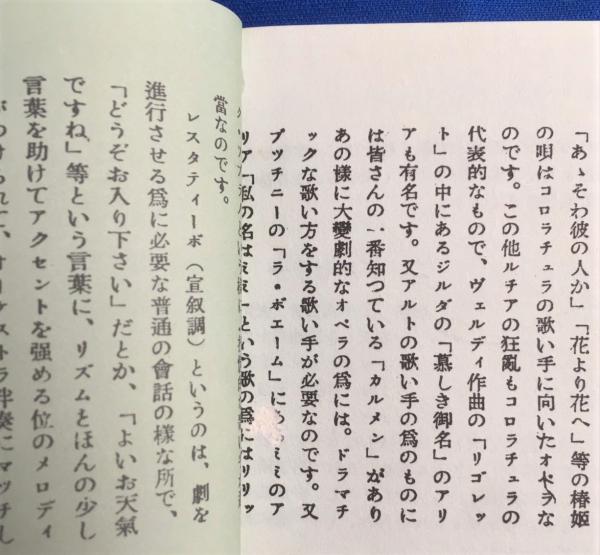 「あゝそわ彼の人か」「花より花へ」等の椿姫
の唄はコロラチュラの歌い手に向いたオペラな
のです。この他ルチアの狂亂もコロラチュラの
代表的なもので、ヴェルディ作曲の「リゴレッ
ト」の中にあるジルダの「慕しき御名」のアリ
アも有名です。又アルトの歌い手の爲のものに
は皆さんの一番知つている「カルメン」があり
あの樣に大變劇的なオペラの爲には。ドラマチ
ックな歌い方をする歌い手が必要なのです。又
プッチニーの「ラ・ボエーム」にあるミミのア
リア「私の名はミミーという歌の爲にはリリッ
當なのです。
レスタティーボ（宣叙調）というのは、劇を
進行させる爲に必要な普通の會話の樣な所で、
「どうぞお入り下さい」だとか、「よいお天氣
ですね」等という言葉に、リズムとほんの少し
言葉を助けてアクセントを強める位のメロディ
がつけられて、オーケストラ伴奏にマッチし